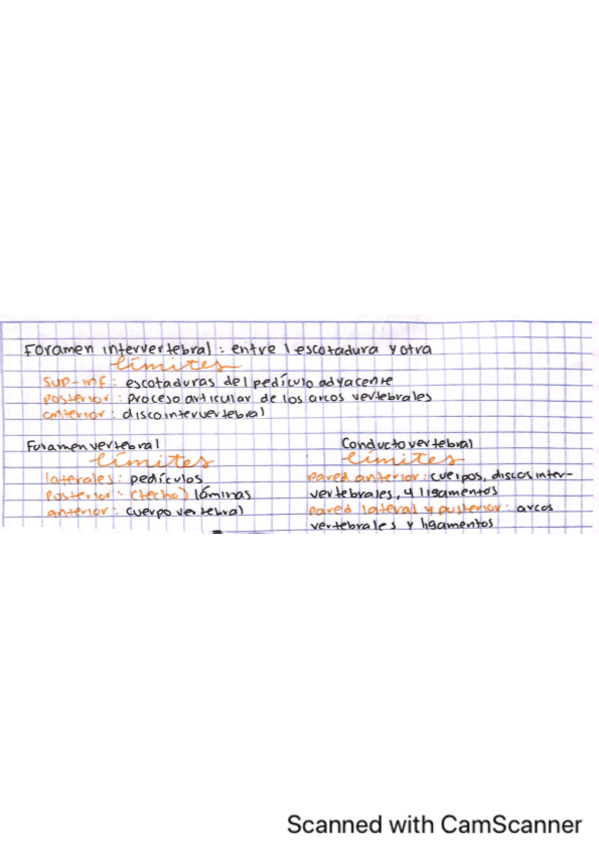 Foramen intervertebral : entre 1 escotadura y otra
límites
sup-inf : escotaduras del pedículo adyacente
posterior : Proceso articular de los arcos vertebrales
anterior : disco intervertebral
Foramen vertebral
límites
laterales : pedículos
Posterior : (techo) láminas
anterior : cuerpo vertebral
Conducto vertebral
límites
pared anterior : cuerpos, discos inter-
vertebrales, y ligamentos
pared lateral y posterior : arcos
vertebrales y ligamentos
Scanned with CamScanner